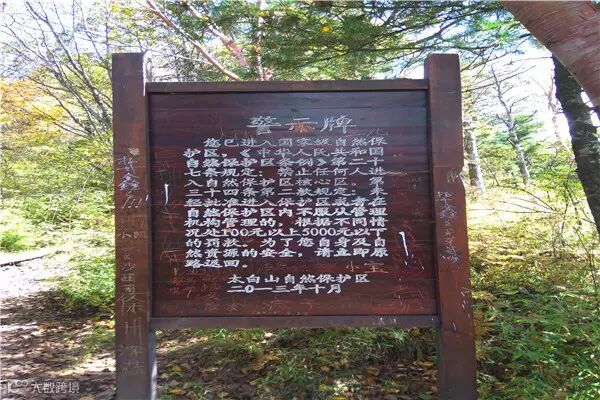 警示牌
您已进入国家级自然保
护区。《中华人民共和国
自然保护区条例》第二十
七条规定：禁止任何人进
入自然保护区核心区；第
三十四条规定：
经批准进入
自然保护区内不服从管理
机构管理的，根据不同情
况处100元以上5000元以下
的罚款。为了您自身及自
然资源的安全，请立即原
路返回。
太白山自然保护区
二〇一三年十月
大数跨境